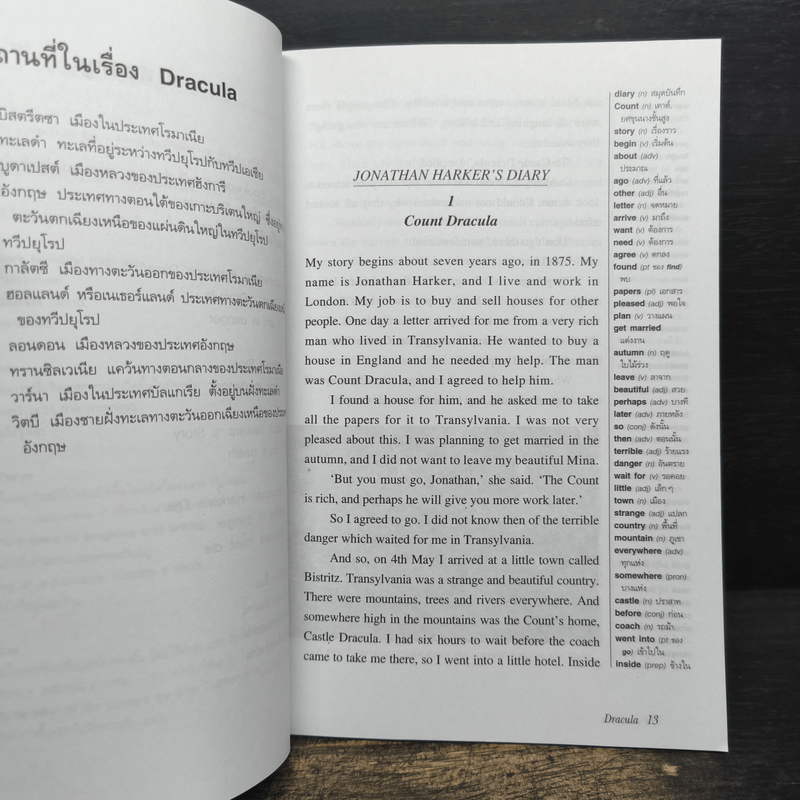 ถานที่ในเรื่อง Dracula
บิสตรีตซา เมืองในประเทศโรมาเนีย
ทะเลดำ ทะเลที่อยู่ระหว่างทวีปยุโรปกับทวีปเอเชีย
บูดาเปสต์ เมืองหลวงของประเทศฮังการี
อังกฤษ ประเทศทางตอนใต้ของเกาะบริเตนใหญ่ ซึ่งอยู่ทาง
ตะวันตกเฉียงเหนือของแผ่นดินใหญ่ในทวีปยุโรป
ทวีปยุโรป
กาลัตซี เมืองทางตะวันออกของประเทศโรมาเนีย
ฮอลแลนด์ หรือเนเธอร์แลนด์ ประเทศทางตะวันตกเฉียงเหนือ
ของทวีปยุโรป
ลอนดอน เมืองหลวงของประเทศอังกฤษ
ทรานซิลเวเนีย แคว้นทางตอนกลางของประเทศโรมาเนีย
วาร์นา เมืองในประเทศบัลแกเรีย ตั้งอยู่บนฝั่งทะเลดำ
วิตบี เมืองชายฝั่งทะเลทางตะวันออกเฉียงเหนือของประเทศ
อังกฤษ
JONATHAN HARKER'S DIARY
1
Count Dracula
My story begins about seven years ago, in 1875. My
name is Jonathan Harker, and I live and work in
London. My job is to buy and sell houses for other
people. One day a letter arrived for me from a very rich
man who lived in Transylvania. He wanted to buy a
house in England and he needed my help. The man
was Count Dracula, and I agreed to help him.
I found a house for him, and he asked me to take
all the papers for it to Transylvania. I was not very
pleased about this. I was planning to get married in the
autumn, and I did not want to leave my beautiful Mina.
'But you must go, Jonathan,' she said. 'The Count
is rich, and perhaps he will give you more work later.'
So I agreed to go. I did not know then of the terrible
danger which waited for me in Transylvania.
And so, on 4th May I arrived at a little town called
Bistritz. Transylvania was a strange and beautiful country.
There were mountains, trees and rivers everywhere. And
somewhere high in the mountains was the Count's home,
Castle Dracula. I had six hours to wait before the coach
came to take me there, so I went into a little hotel. Inside
diary (n) สมุดบันทึก
Count (n) เคาต์,
ยศขุนนางชั้นสูง
story (n) เรื่องราว
begin (v) เริ่มต้น
about (adv)
ประมาณ
ago (adv) ที่แล้ว
other (adj) อื่น
letter (n) จดหมาย
arrive (v) มาถึง
want (v) ต้องการ
need (v) ต้องการ
agree (v) ตกลง
found (pt ของ find)
พบ
papers (pl) เอกสาร
pleased (adj) พอใจ
plan (v) วางแผน
get married
แต่งงาน
autumn (n) ฤดู
ใบไม้ร่วง
leave (v) ลาจาก
beautiful (adj) สวย
perhaps (adv) บางที
later (adv) ภายหลัง
so (conj) ดังนั้น
then (adv) ตอนนั้น
terrible (adj) ร้ายแรง
danger (n) อันตราย
wait for (v) รอคอย
little (adj) เล็ก ๆ
town (n) เมือง
strange (adj) แปลก
country (n) พื้นที่
mountain (n) ภูเขา
everywhere (adv)
ทุกแห่ง
somewhere (pron)
บางแห่ง
castle (n) ปราสาท
before (conj) ก่อน
coach (n) รถม้า
went into (pt ของ
go) เข้าไปใน
inside (prep) ข้างใน
Dracula 13